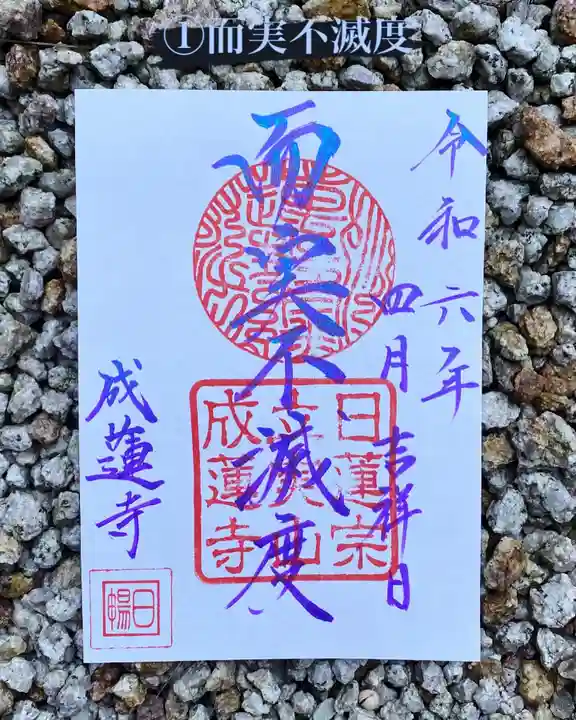 ①而実不滅度
令和六年
四月吉祥日
而実不滅度
日蓮宗
成蓮寺
成蓮寺
日暢